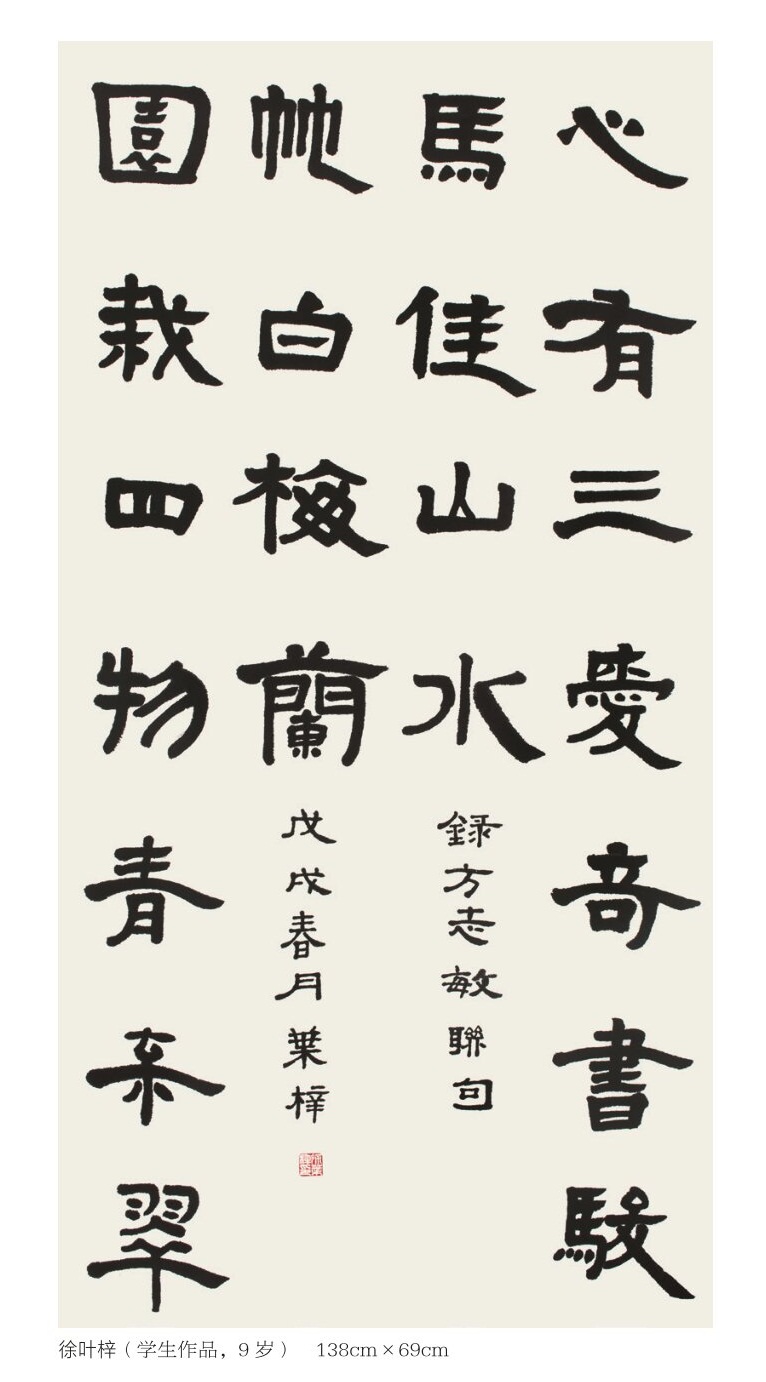 心有三愛奇書駿
馬佳山水
録方志敏聯句
園栽四物青枩翠
竹白梅蘭
戊戌春月葉梓
徐叶梓（学生作品，9 岁） 138cm×69cm